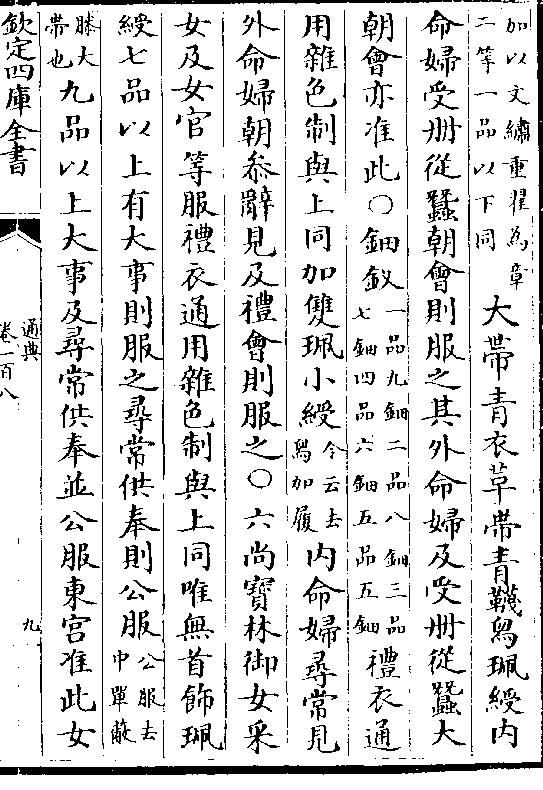 加以文繡重翟為章
二等一品以下同
大帶青衣革帶青韈舄珮綬内
命婦受册從蠶朝會則服之其外命婦及受册從蠶大
朝會亦准此○鈿釵
一品九鈿二品八鈿三品
七鈿四品六鈿五品五鈿
禮衣通
用雜色制與上同加雙珮小綬
今云去
舄加履
内命婦尋常見
外命婦朝叅辭見及禮會則服之○六尚寶林御女采
女及女官等服禮衣通用雜色制與上同唯無首飾珮
綬七品以上有大事則服之尋常供奉則公服
公服去
中單蔽
膝大
帶也
九品以上大事及尋常供奉並公服東宫准此女
欽定四庫全書
通典
卷一百八
九